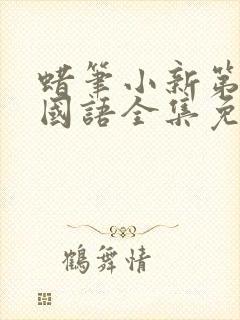 蜡筆小新第
國語全集免
鶴舞情